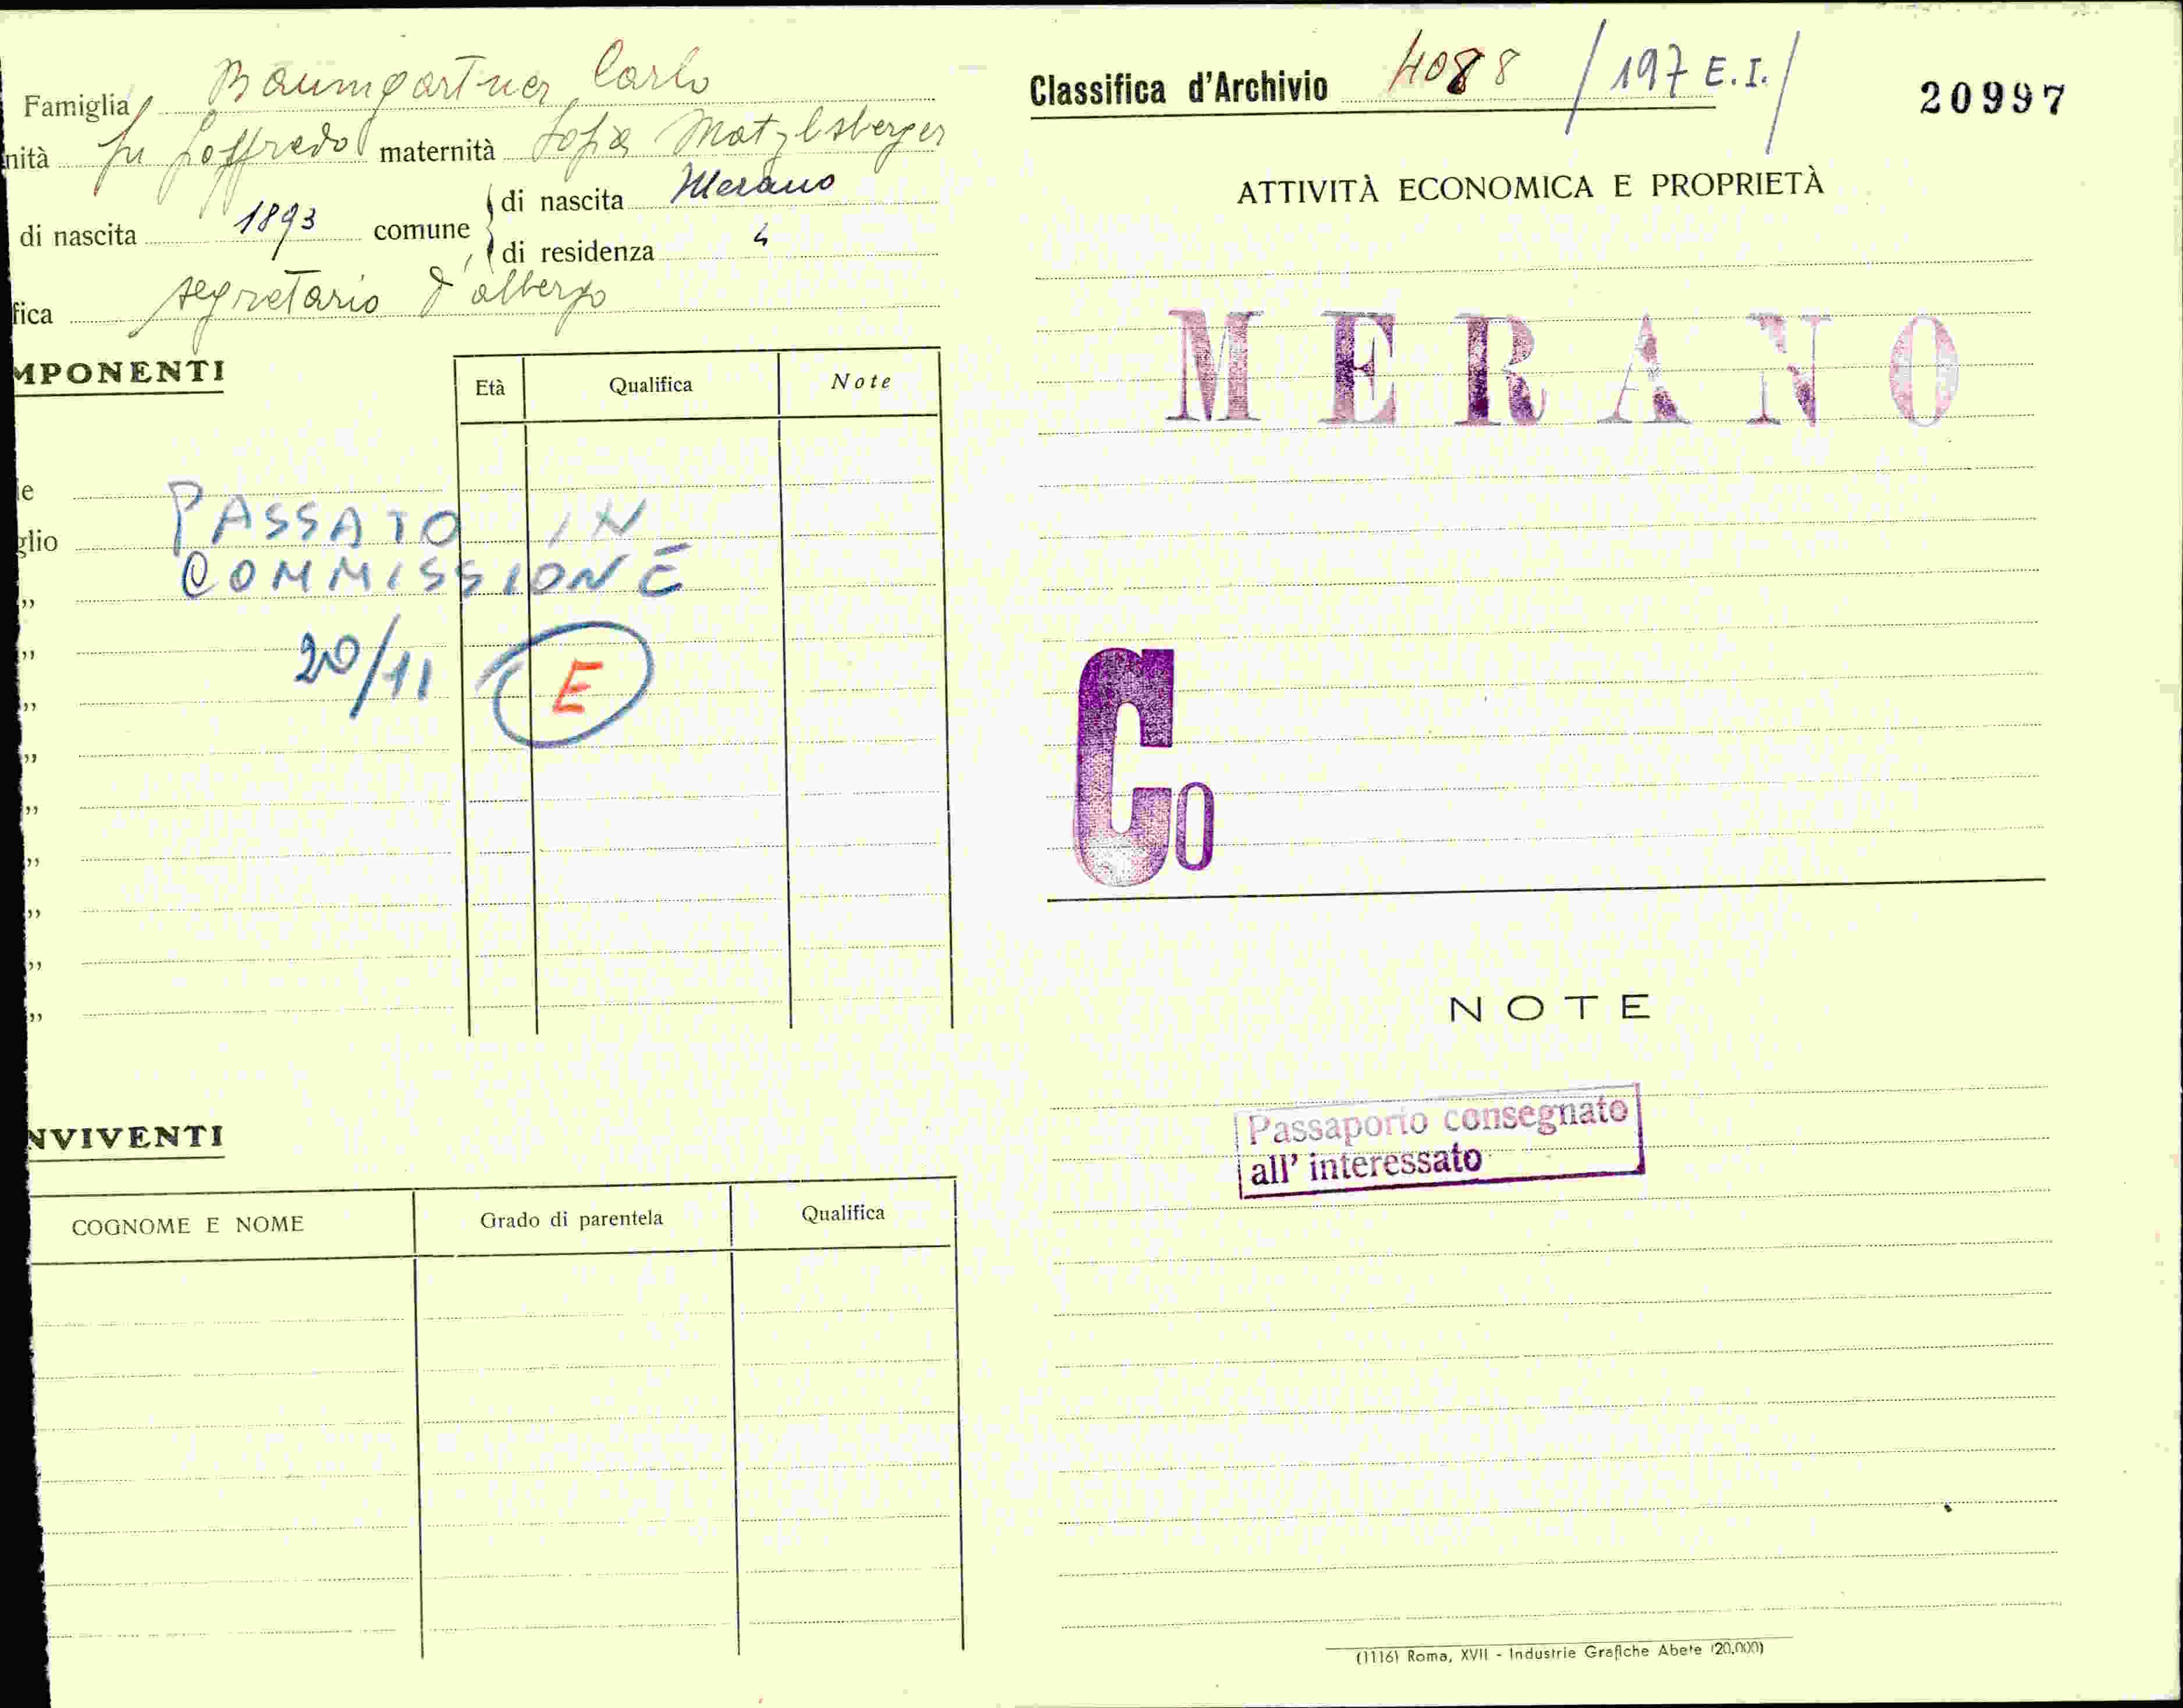 Famiglia Baumgartner Carlo
nità fu Goffredo maternità Sofia Matzlsberger
di nascita 1893 comune di nascita Merano
di residenza "
fica segretario d'albergo
MPONENTI
Età Qualifica Note
le
glio
PASSATO IN
COMMISSIONE
"
20/11 E
"
"
"
"
"
"
"
"
NVIVENTI
COGNOME E NOME Grado di parentela Qualifica
Classifica d'Archivio 4088 / 197 E.I. /
20997
ATTIVITÀ ECONOMICA E PROPRIETÀ
MERANO
Co
NOTE
Passaporto consegnato
all' interessato
(1116) Roma, XVII - Industrie Grafiche Abete (20.000)